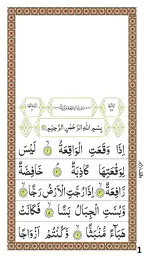 بِسْمِ اللهِ الرَّحْمٰنِ الرَّحِيْمِ
اِذَا وَقَعَتِ الْوَاقِعَةُ ۙ لَيْسَ
لِوَقْعَتِهَا كَاذِبَةٌ ۘ خَافِضَةٌ
رَّافِعَةٌ ۙ اِذَا رُجَّتِ الْاَرْضُ رَجًّا ۙ
وَّبُسَّتِ الْجِبَالُ بَسًّا ۙ فَكَانَتْ
هَبَآءً مُّنْۢبَثًّا ۙ وَّكُنْتُمْ اَزْوَاجًا
1